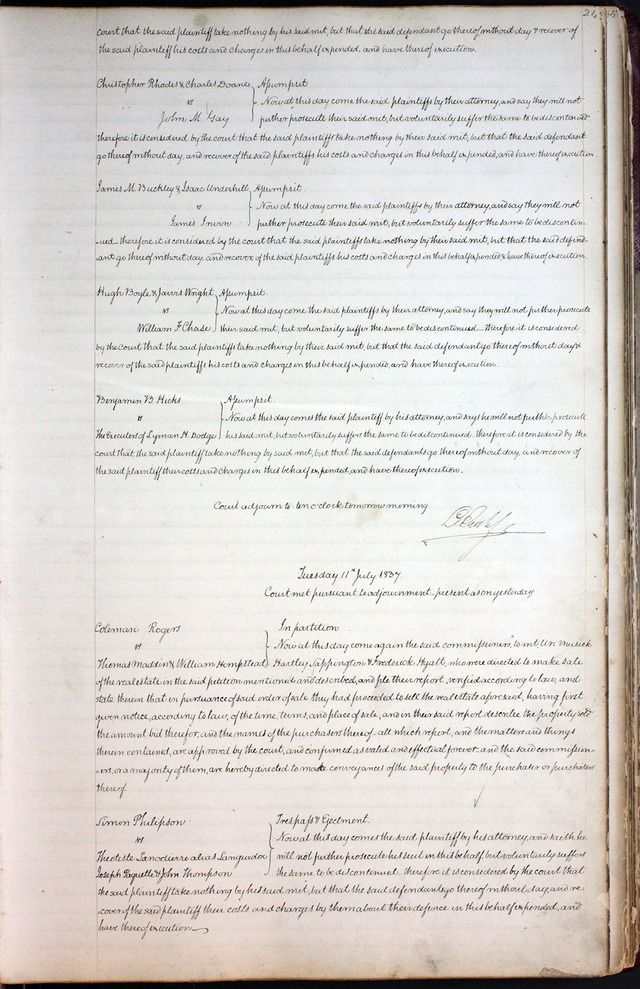 court that the said plaintiff take nothing by his said writ, but that the said defendant go thereof without day & recover of
the said plaintiff his costs and charges in this behalf expended, and have thereof execution.
Christopher Rhodes & Charles Doane
vs
John M. Gay
Assumpsit
Now at this day come the said plaintiffs by their attorney, and say they will not
further prosecute their said writ, but voluntarily suffer the same to be discontinued
therefore it is considered by the court that the said plaintiffs take nothing by their said writ, but that the said defendant
go thereof without day, and recover of the said plaintiffs his costs and charges in this behalf expended, and have thereof execution
James M. Buckley & Isaac Underhill
vs
James Irwin
Assumpsit
Now at this day come the said plaintiffs by their attorney, and say they will not
further prosecute their said writ, but voluntarily suffer the same to be discontin-
-ued. therefore it is considered by the court that the said plaintiffs take nothing by their said writ, but that the said defend-
-ant go thereof without day, and recover of the said plaintiffs his costs and charges in this behalf expended & have thereof execution.
Hugh Boyle & Jarvis Wright
vs
William F. Chase
Assumpsit
Now at this day come the said plaintiffs by their attorney, and say they will not further prosecute
their said writ, but voluntarily suffer the same to be discontinued - therefore it is considered
by the court that the said plaintiffs take nothing by their said writ, but that the said defendant go thereof without day &
recover of the said plaintiffs his costs and charges in this behalf expended, and have thereof execution.
Benjamin B. Hicks
vs
The Executors of Lyman H. Dodge
Assumpsit.
Now at this day comes the said plaintiff by his attorney, and says he will not further prosecute
his said writ, but voluntarily suffers the same to be discontinued. therefore it is considered by the
court that the said plaintiff take nothing by said writ, but that the said defendants go thereof without day, and recover of
the said plaintiff their costs and charges in this behalf expended, and have thereof execution.
Court adjourn to ten o'clock tomorrow morning.
Tuesday 11th July 1837
Court met pursuant to adjournment - present as on yesterday
Coleman Rogers
vs
Thomas Maddin & William Hempstead
In partition
Now at this day come again the said commissioners, to wit, Uri Musick
Hartley Sappington & Frederick Hyatt, who were directed to make sale
of the real estate in the said petition mentioned and described, and file their report, verified according to law, and
state therein that in pursuance of said order of sale they had proceeded to sell the real estate aforesaid, having first
given notice, according to law, of the time, terms, and place of sale, and in their said report describe the property sold
the amount bid therefor, and the names of the purchasers thereof - all which report, and the matters and things
therein contained, are approved by the court, and confirmed as valid and effectual forever - and the said commission-
-ers, or a majority of them, are hereby directed to make conveyances of the said property to the purchaser or purchasers
thereof.
Simon Philipson
vs
Theoteste Lanodierre alias Languedoc
Joseph Paquette & John Thompson
Trespass & Ejectment.
Now at this day comes the said plaintiff by his attorney, and saith he
will not further prosecute his suit in this behalf, but voluntarily suffers
the same to be discontinued. therefore it is considered by the court that
the said plaintiff take nothing by his said writ, but that the said defendants go thereof without day, and re-
-cover of the said plaintiff their costs and charges by them about their defence in this behalf expended, and
have thereof execution.